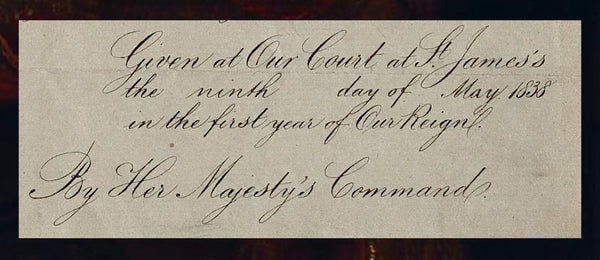 Given at Our Court at St. James's
the ninth day of May 1838
in the first year of Our Reign.
By Her Majesty's Command.